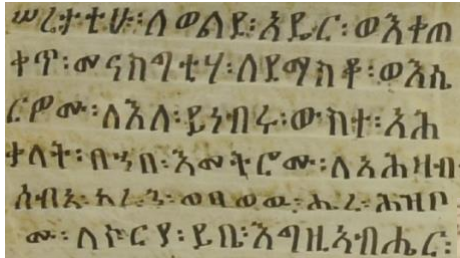 ሠረታቲሁ፡ለወልደ፡አዴር፡ወእቀጠ
ቀጥ፡መናስግቲሃ፡ለደማስቆ፡ወእሴ
ርዎሙ፡ለእለ፡ይነብሩ፡ውስተ፡አሕ
ቃላት፡በኀበ፡እመትሮሙ፡ለአሕዛብ
ሰብአ፡ካራን፡ወፄወዉ፡ሔረ፡ሕዝቦ
ሙ፡ለሶርያ፡ይቤ፡እግዚአብሔር፡